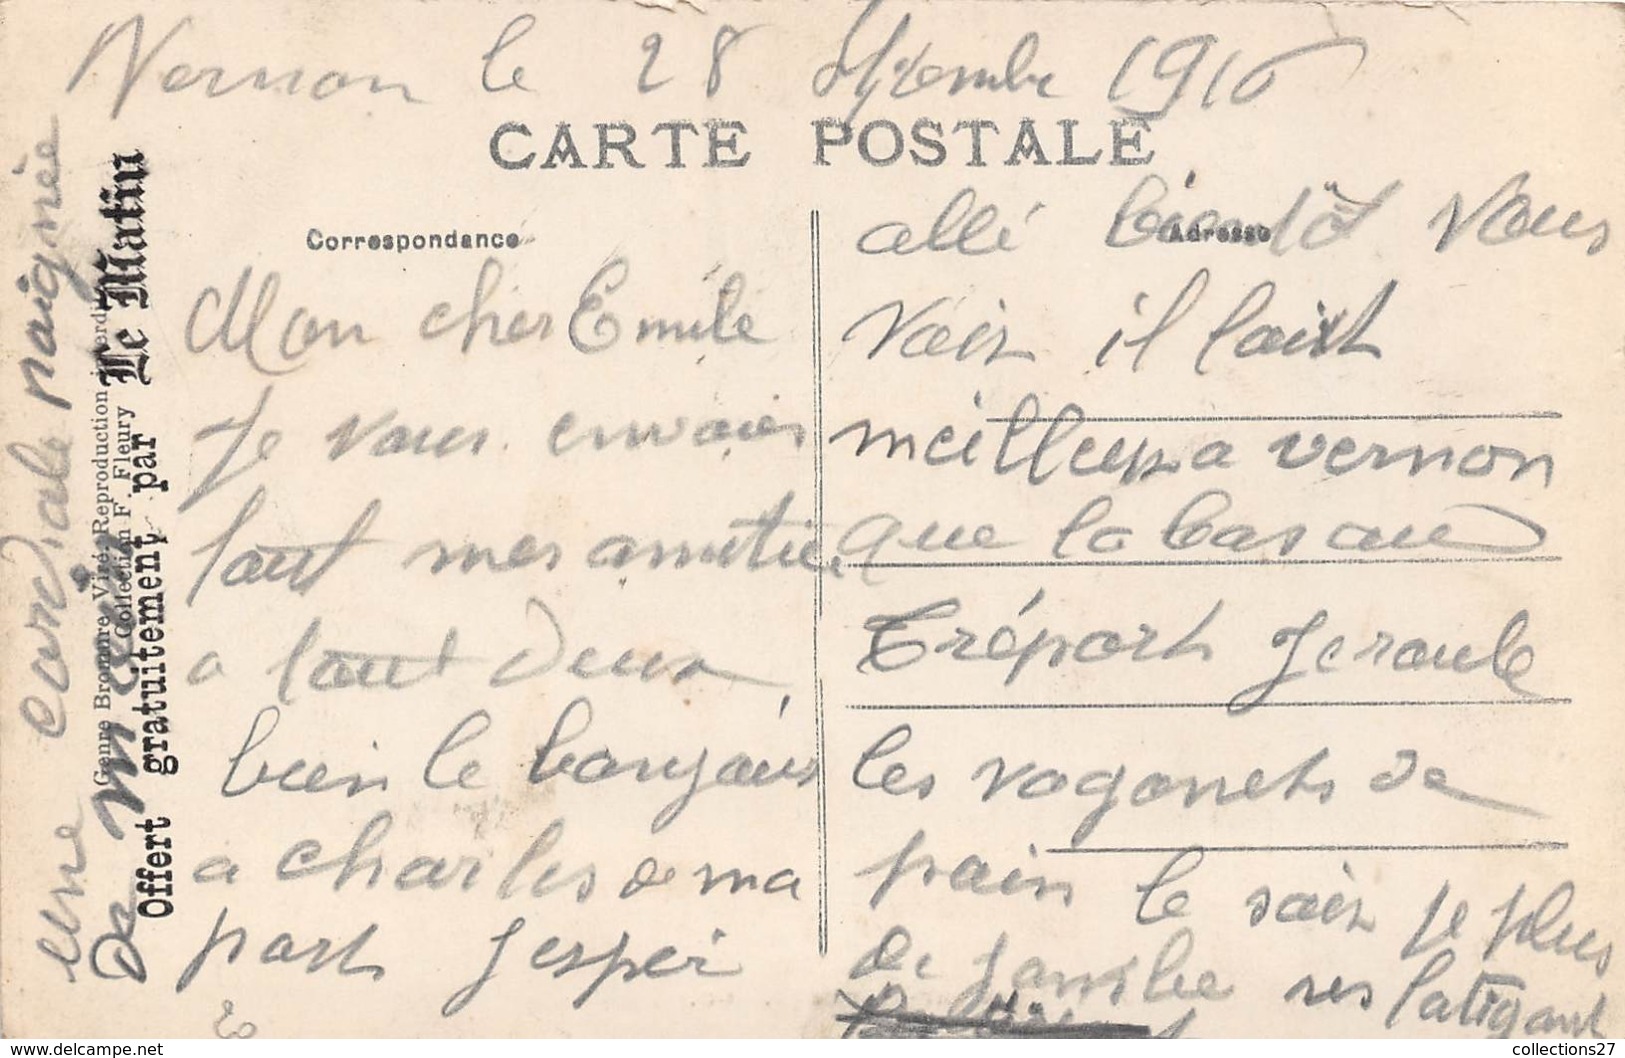 Vernon le 28 septembre 1916
CARTE POSTALE
Correspondance
Adresse
Mon cher Emile
Je vous envoies
tout mes amitiés
a tout deux
bien le bonjour
a charles de ma
part Jesper
allé bientôt vous
voir il fait
meilleur a vernon
que la bas au
Tréport Je roule
les vagonets de
pain le soir Je plus
de Jambe ses fatigant
une cordiale poignée
De main
Genre Bromure Viré. Reproduction interdite
Collection F. Fleury
Offert gratuitement par Le Matin
collections27